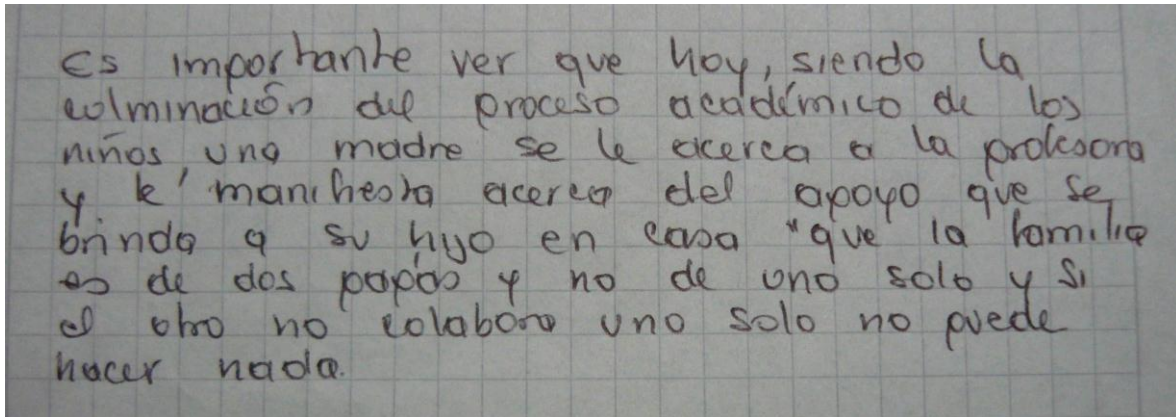 Es importante ver que hoy, siendo la
culminación del proceso académico de los
niños, una madre se le acerca a la profesora
y le manifiesta acerca del apoyo que se
brinda a su hijo en casa "que la familia
es de dos papás y no de uno solo y si
el otro no colabora uno solo no puede
hacer nada.